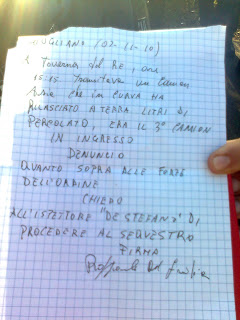 GIUGLIANO (07-11-10)
A Taverna del Re, ore
15.15 transitava un camion
che in curva ha
rilasciato a terra litri di
percolato, era il 3° camion
in ingresso
Denuncio
quanto sopra alle forze
dell'ordine
chiedo
all'ispettore "De Stefano" di
procedere al sequestro
firma